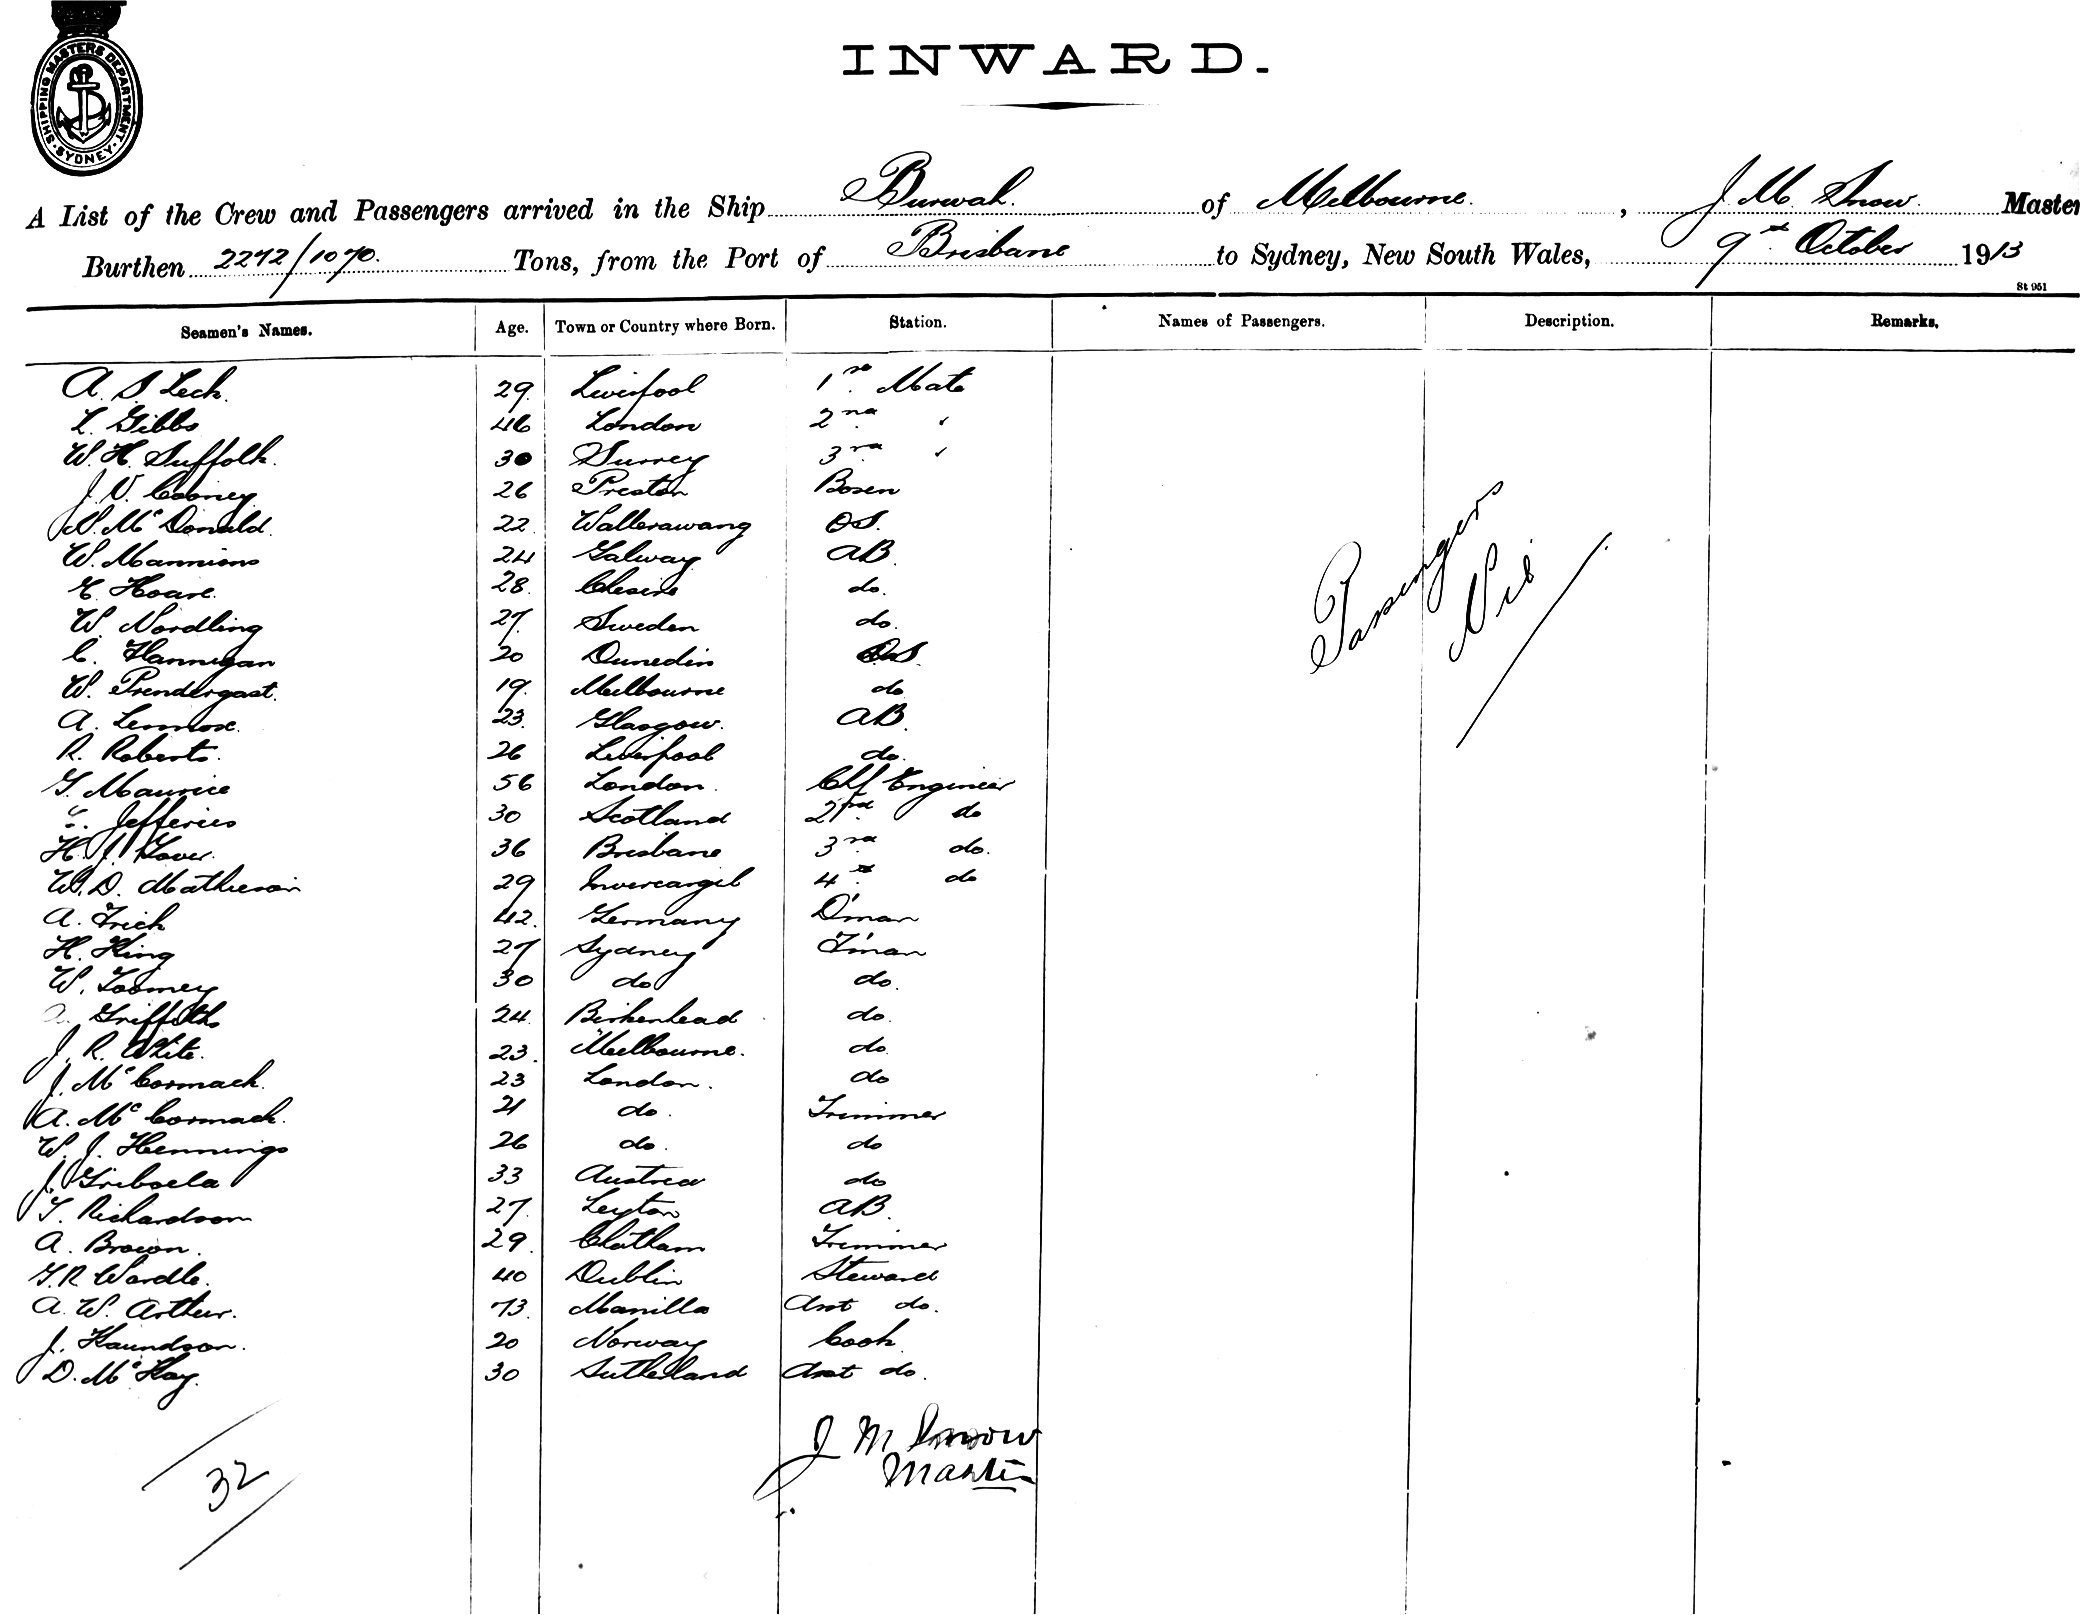 SHIPPING MASTERS DEPARTMENT
SYDNEY
INWARD.
A List of the Crew and Passengers arrived in the Ship Burwah. of Melbourne. , J. M. Snow. Master
Burthen 2272/1070. Tons, from the Port of Brisbane to Sydney, New South Wales, 9th October 1913
St 951
Seamen's Names. Age. Town or Country where Born. Station. Names of Passengers. Description. Remarks.
A. S. Lech. 29. Liverpool 1st Mate
L. Gibbs 46 London 2nd "
W. H. Suffolk. 30 Surrey 3rd "
J. V. Cooney 26 Preston Bosen
N. McDonald. 22 Wallerawang OS.
W. Mannions 24 Galway AB.
E. Hoare. 28. do.
W. Nordling 27. Sweden do.
C. Flannigan 20 Dunedin OS.
W. Prendergast. 19. Melbourne do
A. Lennox. 23. Glasgow. AB.
R. Roberts. 26 Liverpool do.
G. Maurice 56 London. Chf Engineer
Jefferies 30 Scotland 2nd do
H. J. 36 Brisbane 3rd do.
W. D. Mathieson 29 Invercargil 4th do
A. Frich 42. Germany D'man
H. King 27 Sydney F'man
W. Toomey 30 do do.
A. Griffiths 24. Birkenhead do.
J. R. White. 23. Melbourne. do
J. McCormack. 23 London. do
A. McCormack. 21 do. Trimmer
W. J. Hennings 26 do. do
J. Gribsela 33 Austria do
T. Richardson 27. Leyton AB.
A. Brown. 29. Chatham Trimmer
T. R. Wardle. 40 Dublin Steward
A. W. Arthur. 73. Manilla Asst do.
J. Haundson. 20 Norway Cook
D. McHay. 30 Sutherland Asst do.
Passengers
Nil
J M Snow
Master
32